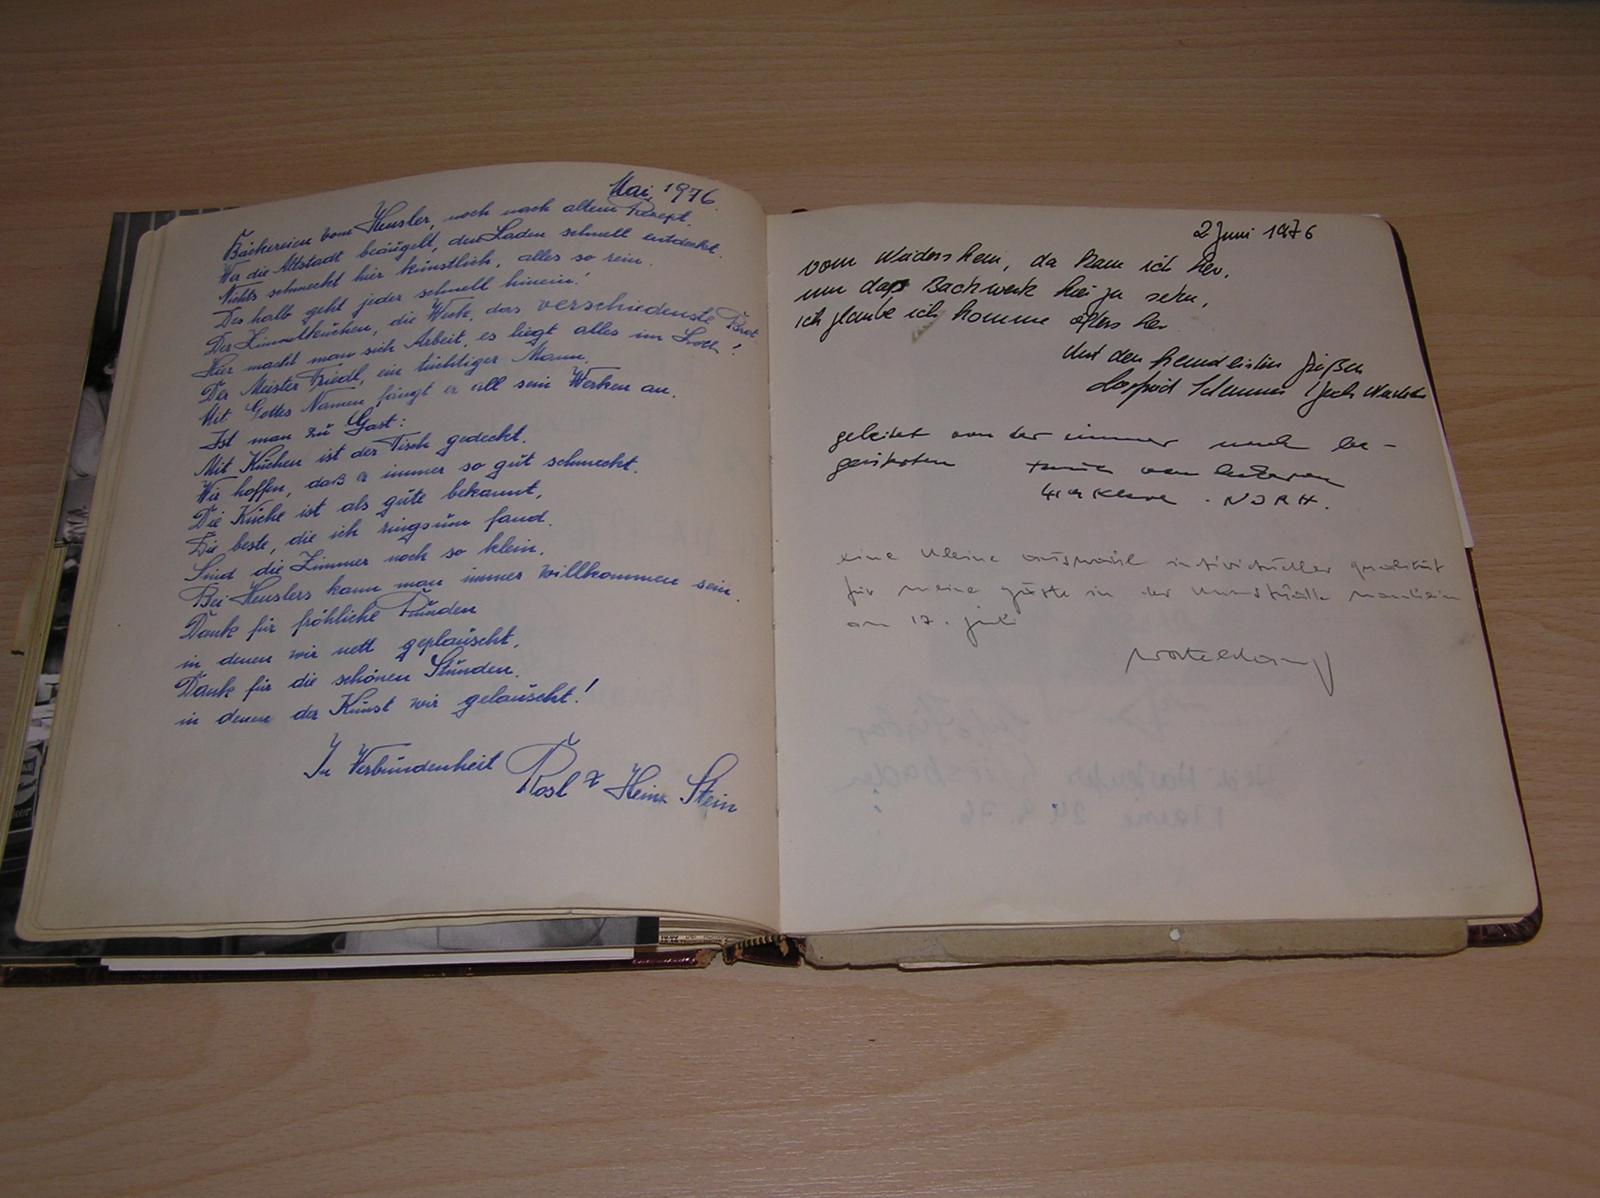 Mai, 1976
Bäckereien vom Heusler, noch nach altem Rezept.
Wer die Altstadt beäugelt, den Laden schnell entdeckt.
Nichts schmeckt hier künstlich, alles so rein.
Deshalb geht jeder schnell hinein!
Der Zimmetkuchen, die Weck, das verschiedenste Brot
Hier macht man sich Arbeit, es liegt alles im Loth!
Der Meister Friedl, ein tüchtiger Mann,
Mit Gottes Namen fängt er all sein Werken an.
Ist man zu Gast:
Mit Kuchen ist der Tisch gedeckt.
Wir hoffen, daß es immer so gut schmeckt.
Die Küche ist als gute bekannt,
Die beste, die ich ringsum fand.
Sind die Zimmer noch so klein,
Bei Heuslers kann man immer willkommen sein.
Danke für fröhliche Runden
in denen wir nett geplauscht,
Dank für die schönen Stunden,
in denen der Kunst wir gelauscht!
In Verbundenheit Rosl & Heinz Stein
2 Juni 1976
vom Weidersheim, da kam ich her,
um das Backwerk hier zu sehen,
ich glaube ich komme öfters her
Mit den freundlichsten Grüßen
geleitet von der immer noch be-
geisterten
eine kleine auswahl individueller qualität
für meine gäste in der kunsthalle mannheim
am 17. juli